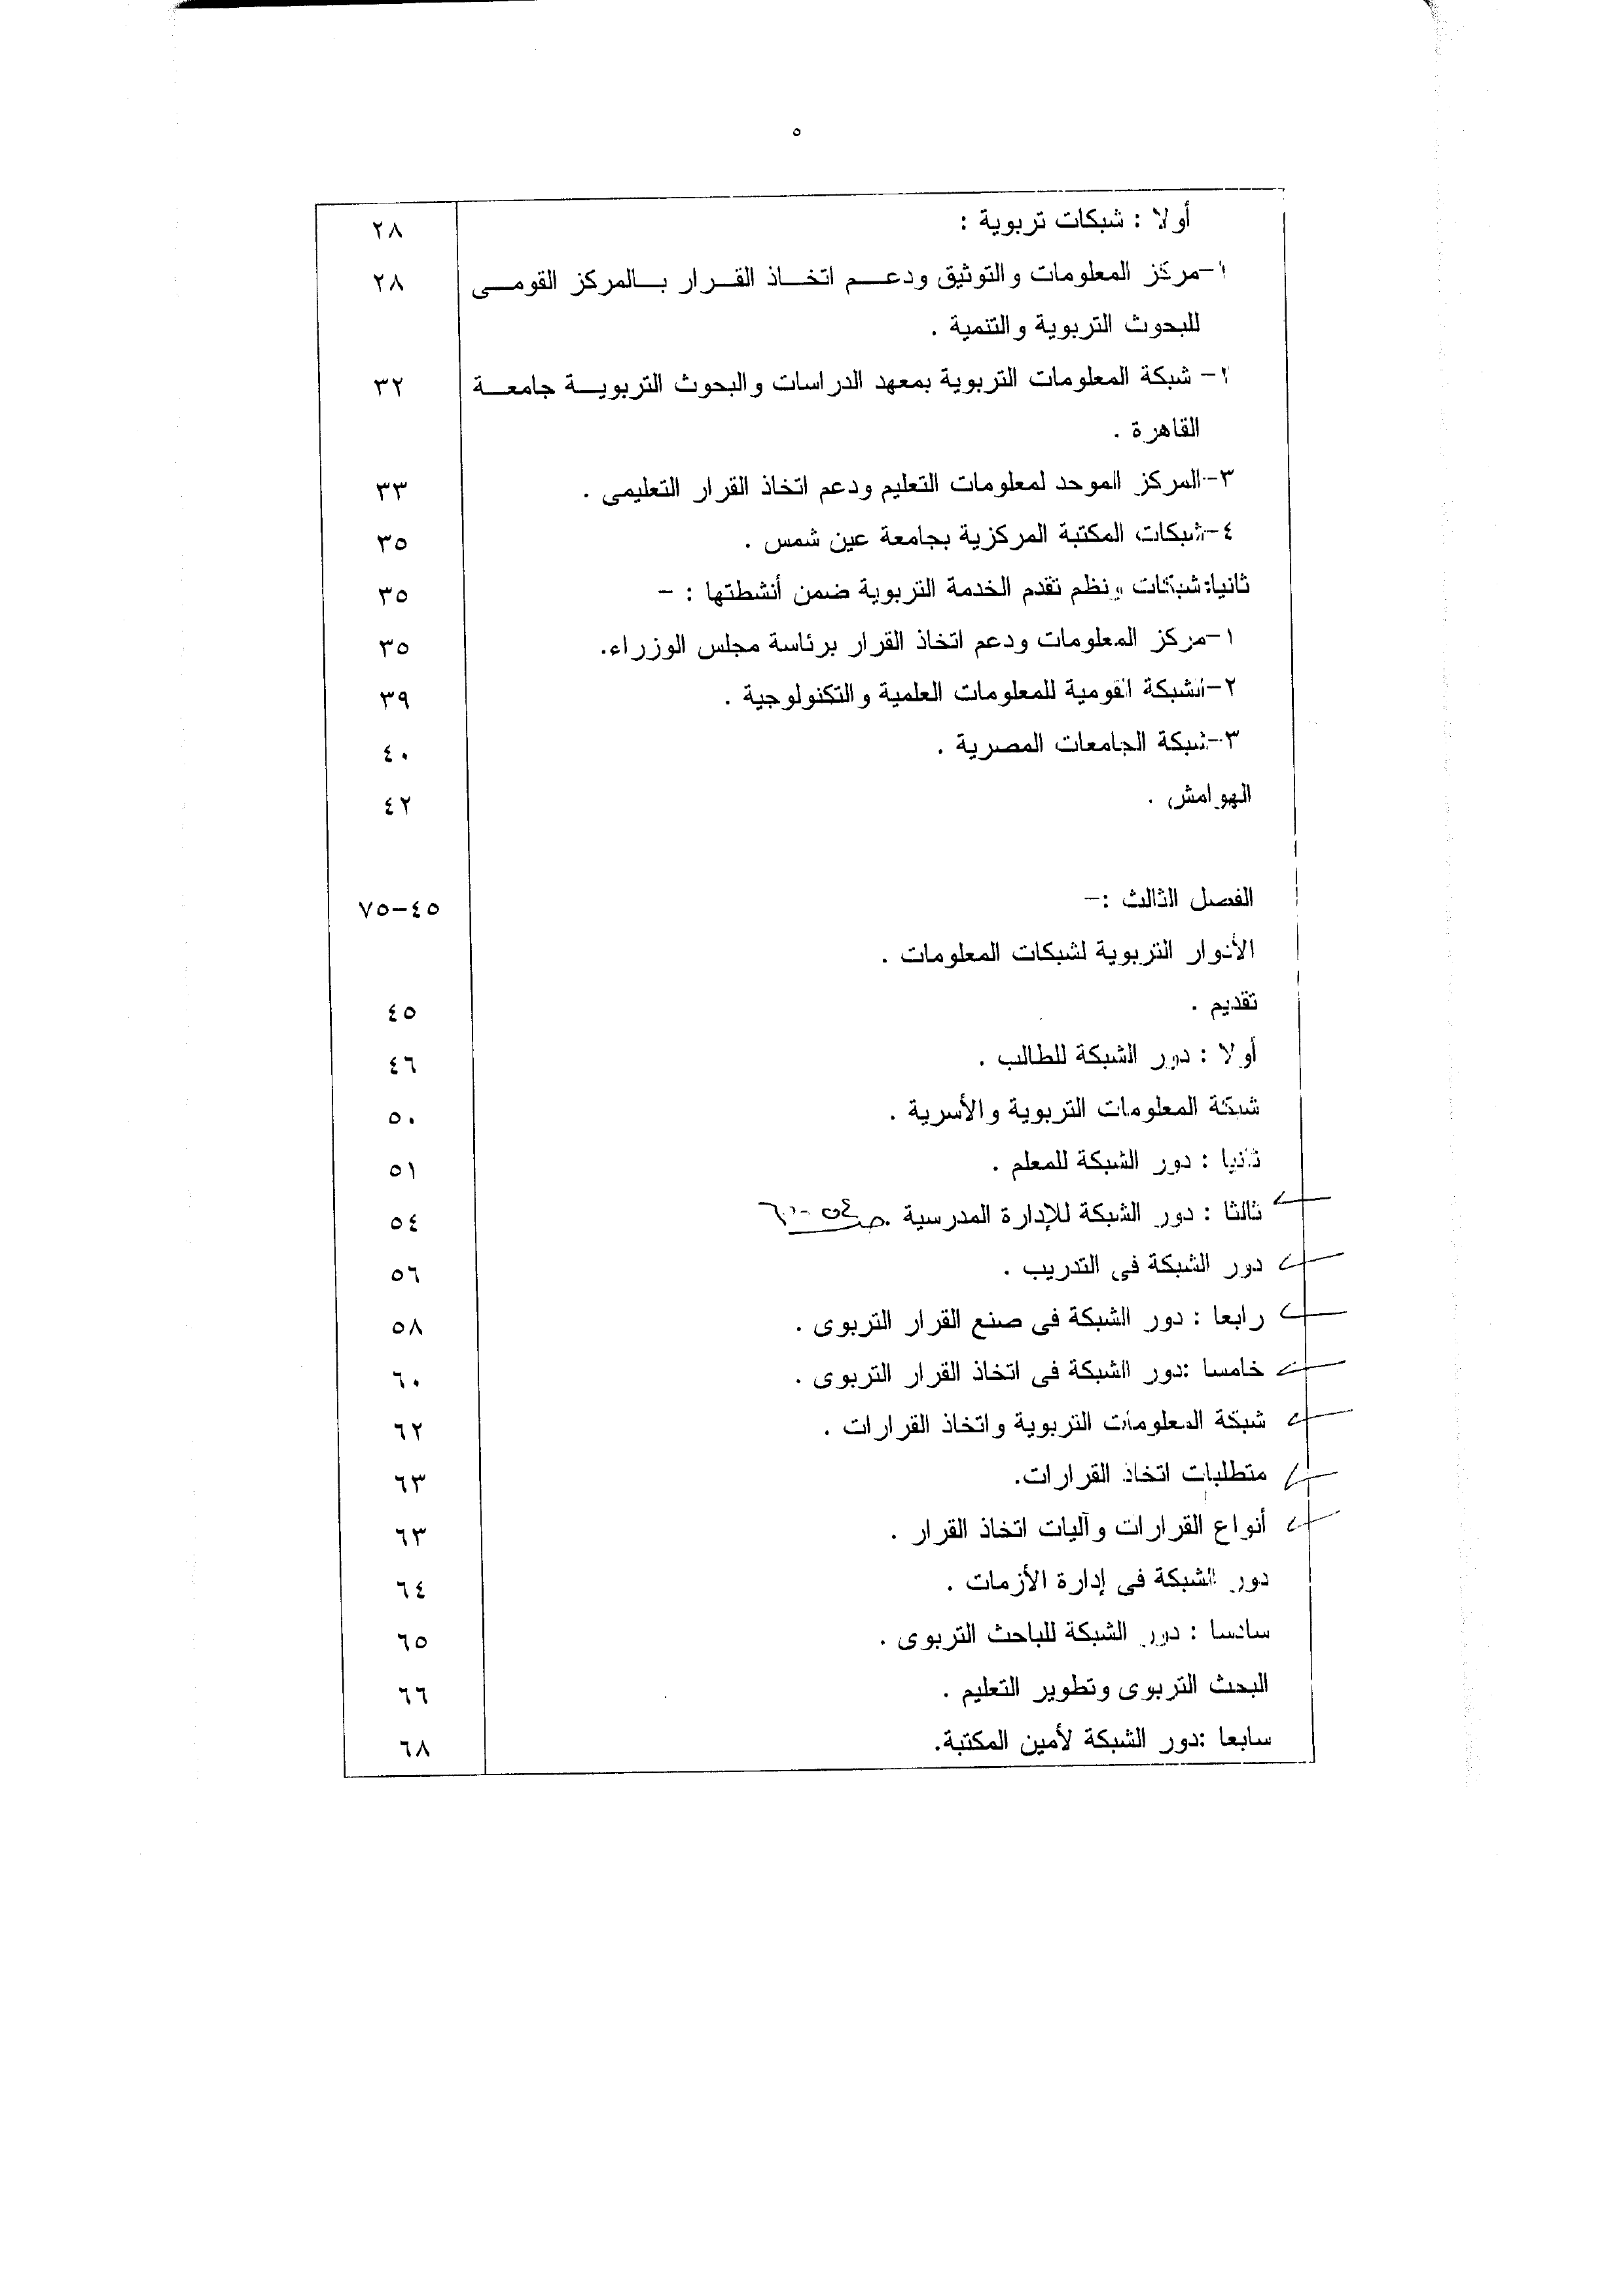 ٥
أولا : شبكات تربوية : ٢٨
١-مركز المعلومات والتوثيق ودعم اتخاذ القرار بالمركز القومى ٢٨
للبحوث التربوية والتنمية .
٢- شبكة المعلومات التربوية بمعهد الدراسات والبحوث التربوية جامعة ٣٢
القاهرة .
٣-المركز الموحد لمعلومات التعليم ودعم اتخاذ القرار التعليمى . ٣٣
٤-شبكات المكتبة المركزية بجامعة عين شمس . ٣٥
ثانيا: شبكات ونظم تقدم الخدمة التربوية ضمن أنشطتها : - ٣٥
١-مركز المعلومات ودعم اتخاذ القرار برئاسة مجلس الوزراء. ٣٥
٢-الشبكة القومية للمعلومات العلمية والتكنولوجية . ٣٩
٣-شبكة الجامعات المصرية . ٤٠
الهوامش . ٤٢
الفصل الثالث :- ٤٥-٧٥
الأدوار التربوية لشبكات المعلومات .
تقديم . ٤٥
أولا : دور الشبكة للطالب . ٤٦
شبكة المعلومات التربوية والأسرية . ٥٠
ثانيا : دور الشبكة للمعلم . ٥١
ثالثا : دور الشبكة للإدارة المدرسية . ص٥٤-٦٠ ٥٤
دور الشبكة فى التدريب . ٥٦
رابعا : دور الشبكة فى صنع القرار التربوى . ٥٨
خامسا :دور الشبكة فى اتخاذ القرار التربوى . ٦٠
شبكة المعلومات التربوية واتخاذ القرارات . ٦٢
متطلبات اتخاذ القرارات. ٦٣
أنواع القرارات وآليات اتخاذ القرار . ٦٣
دور الشبكة فى إدارة الأزمات . ٦٤
سادسا : دور الشبكة للباحث التربوى . ٦٥
البحث التربوى وتطوير التعليم . ٦٦
سابعا :دور الشبكة لأمين المكتبة. ٦٨